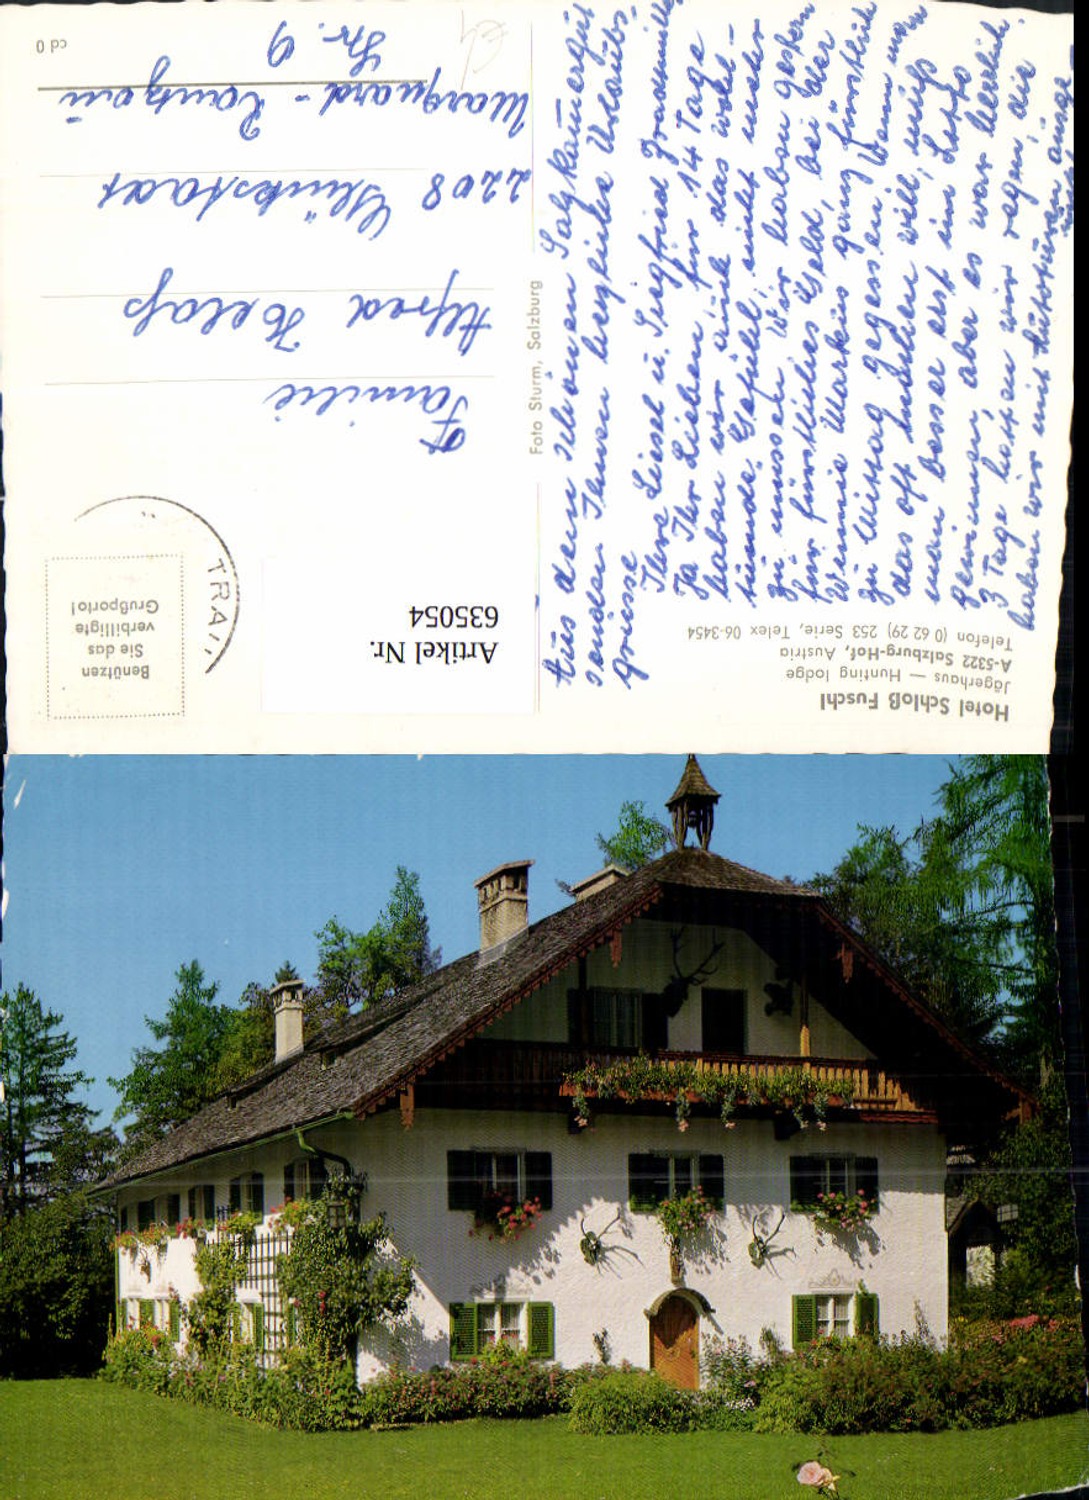 Hotel Schloß Fuschl
Jägerhaus — Hunting lodge
A-5322 Salzburg-Hof, Austria
Telefon (0 62 29) 253 Serie, Telex 06-3454
Aus dem schönen Salzkammergut
senden Ihnen herzliche Urlaubs-
grüsse
Ihre Liesel u. Siegfried
Ja Ihr Lieben, für 14 Tage
haben wir ohne das wohl-
tuende Gefühl, nicht mehr
zu müssen. Wir haben gestern
für fürstliches Geld, bei der
Winnie Markus ganz fürstlich
zu Mittag gegessen. Wenn man
das oft machen will, muß
man besser erst im Lotto
gewinnen, aber es war herrlich.
3 Tage hatten wir Regen, die
haben wir mit Autotouren ausge-
Foto Sturm, Salzburg
Artikel Nr.
635054
Benützen
Sie das
verbilligte
Grußporto!
TRA
Familie
Alfred
2208 Glückstadt
Marquard-Rantzau
Str. 9
cd 0